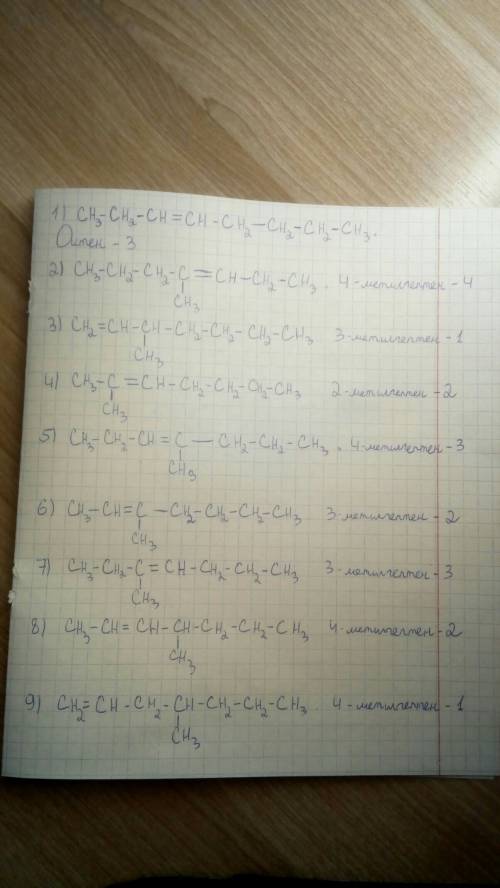 1) CH3-CH2-CH=CH-CH2-CH2-CH2-CH3.
Октен-3
2) CH3-CH2-CH2-C=CH-CH2-CH3. 4-метилгептен-4
CH3
3) CH2=CH-CH-CH2-CH2-CH2-CH3 3-метилгептен-1
CH3
4) CH3-C=CH-CH2-CH2-CH2-CH3 2-метилгептен-2
CH3
5) CH3-CH2-CH=C-CH2-CH2-CH3. 4-метилгептен-3
CH3
6) CH3-CH=C-CH2-CH2-CH2-CH3 3-метилгептен-2
CH3
7) CH3-CH2-C=CH-CH2-CH2-CH3 3-метилгептен-3
CH3
8) CH3-CH=CH-CH-CH2-CH2-CH3 4-метилгептен-2
CH3
9) CH2=CH-CH2-CH-CH2-CH2-CH3. 4-метилгептен-1
CH3